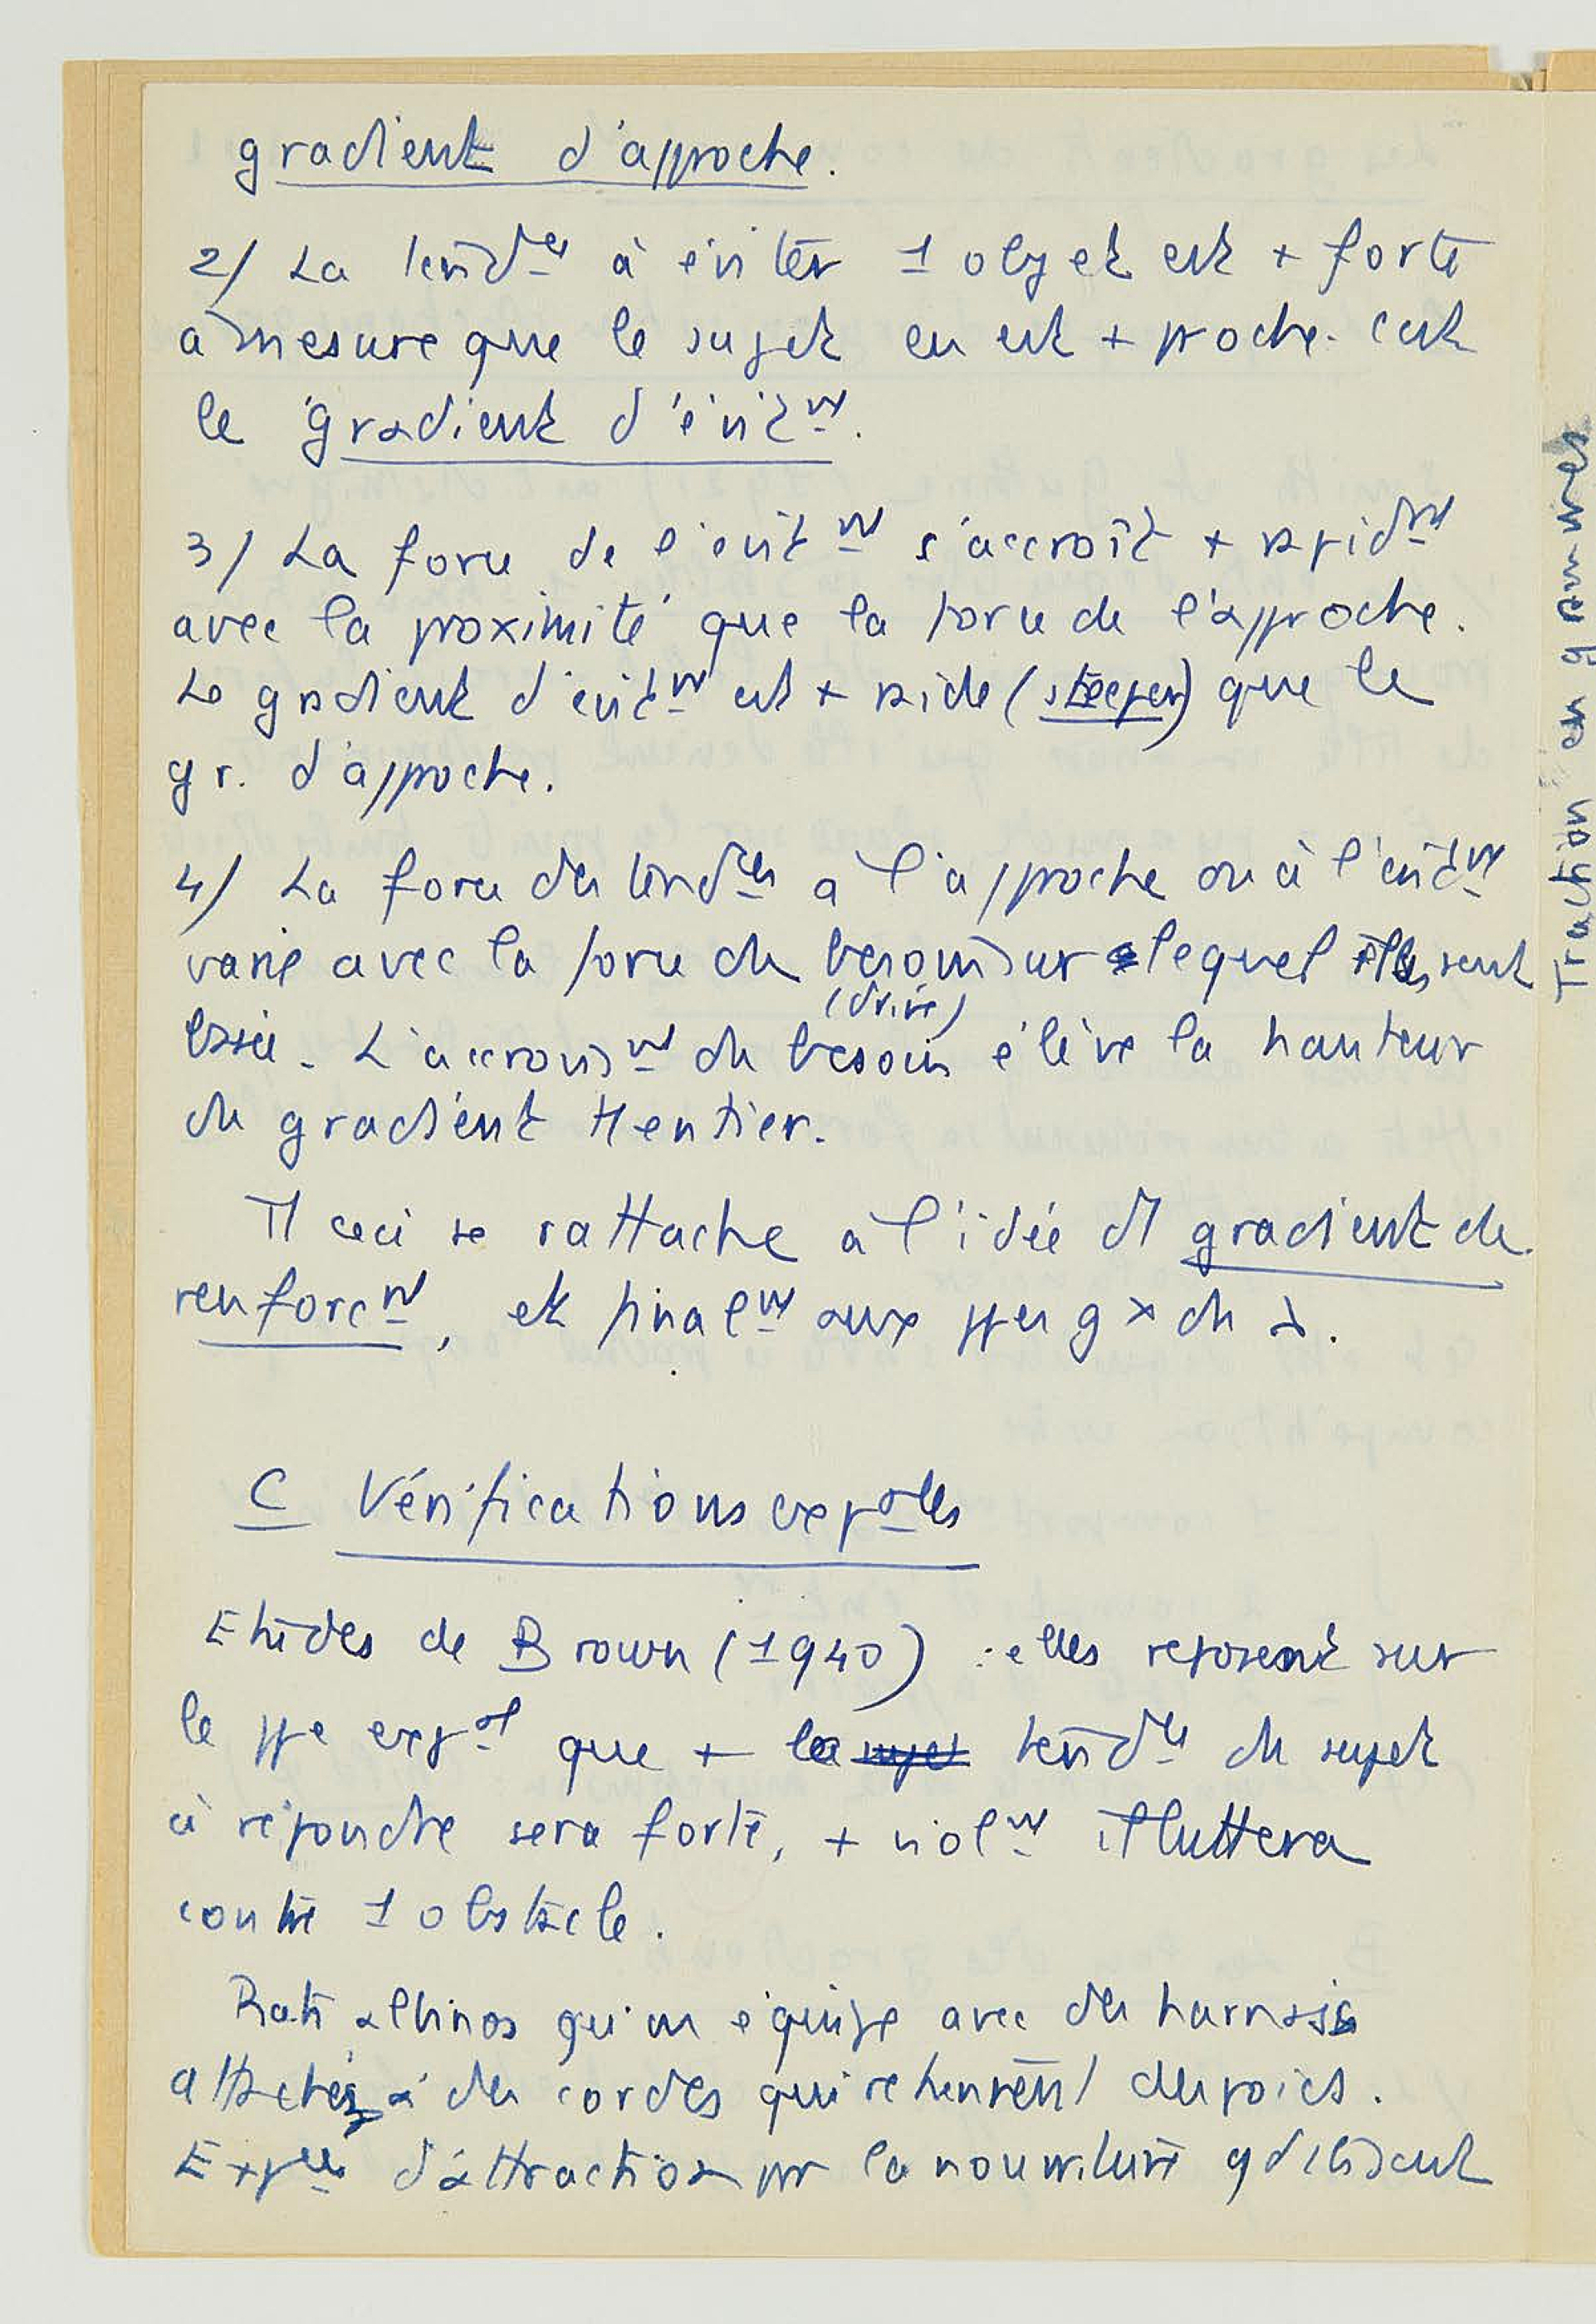 gradient d'approche.
2/ La tendces à éviter 1 objet est + forte
à mesure que le sujet en est + proche. C'est
le gradient d'évitnt.
3/ La force de l'évitnt s'accroît + rapidnt
avec la proximité que la force de l'approche.
Le gradient d'évitnt est + raide (steeper) que le
gr. d'approche.
4/ La force des tendces à l'approche ou à l'évitnt
varie avec la force du besoin sur lequel elles sont
(drive)
basées. L'accroisnt du besoin élève la hauteur
du gradient tt entier.
Tt ceci se rattache à l'idée de gradient de
renforcnt, et finalnt aux ppes gx du
C Vérifications expales
Etudes de Brown (1940) : elles reposent sur
le ppe expal que + la tendce du sujet
à répondre sera forte, + violnt il luttera
contre 1 obstacle.
Rats albinos qu'on équipe avec des harnais
attachés à des cordes qui retiennent des poids.
Expces d'attraction pr la nourriture
Traction en grammes